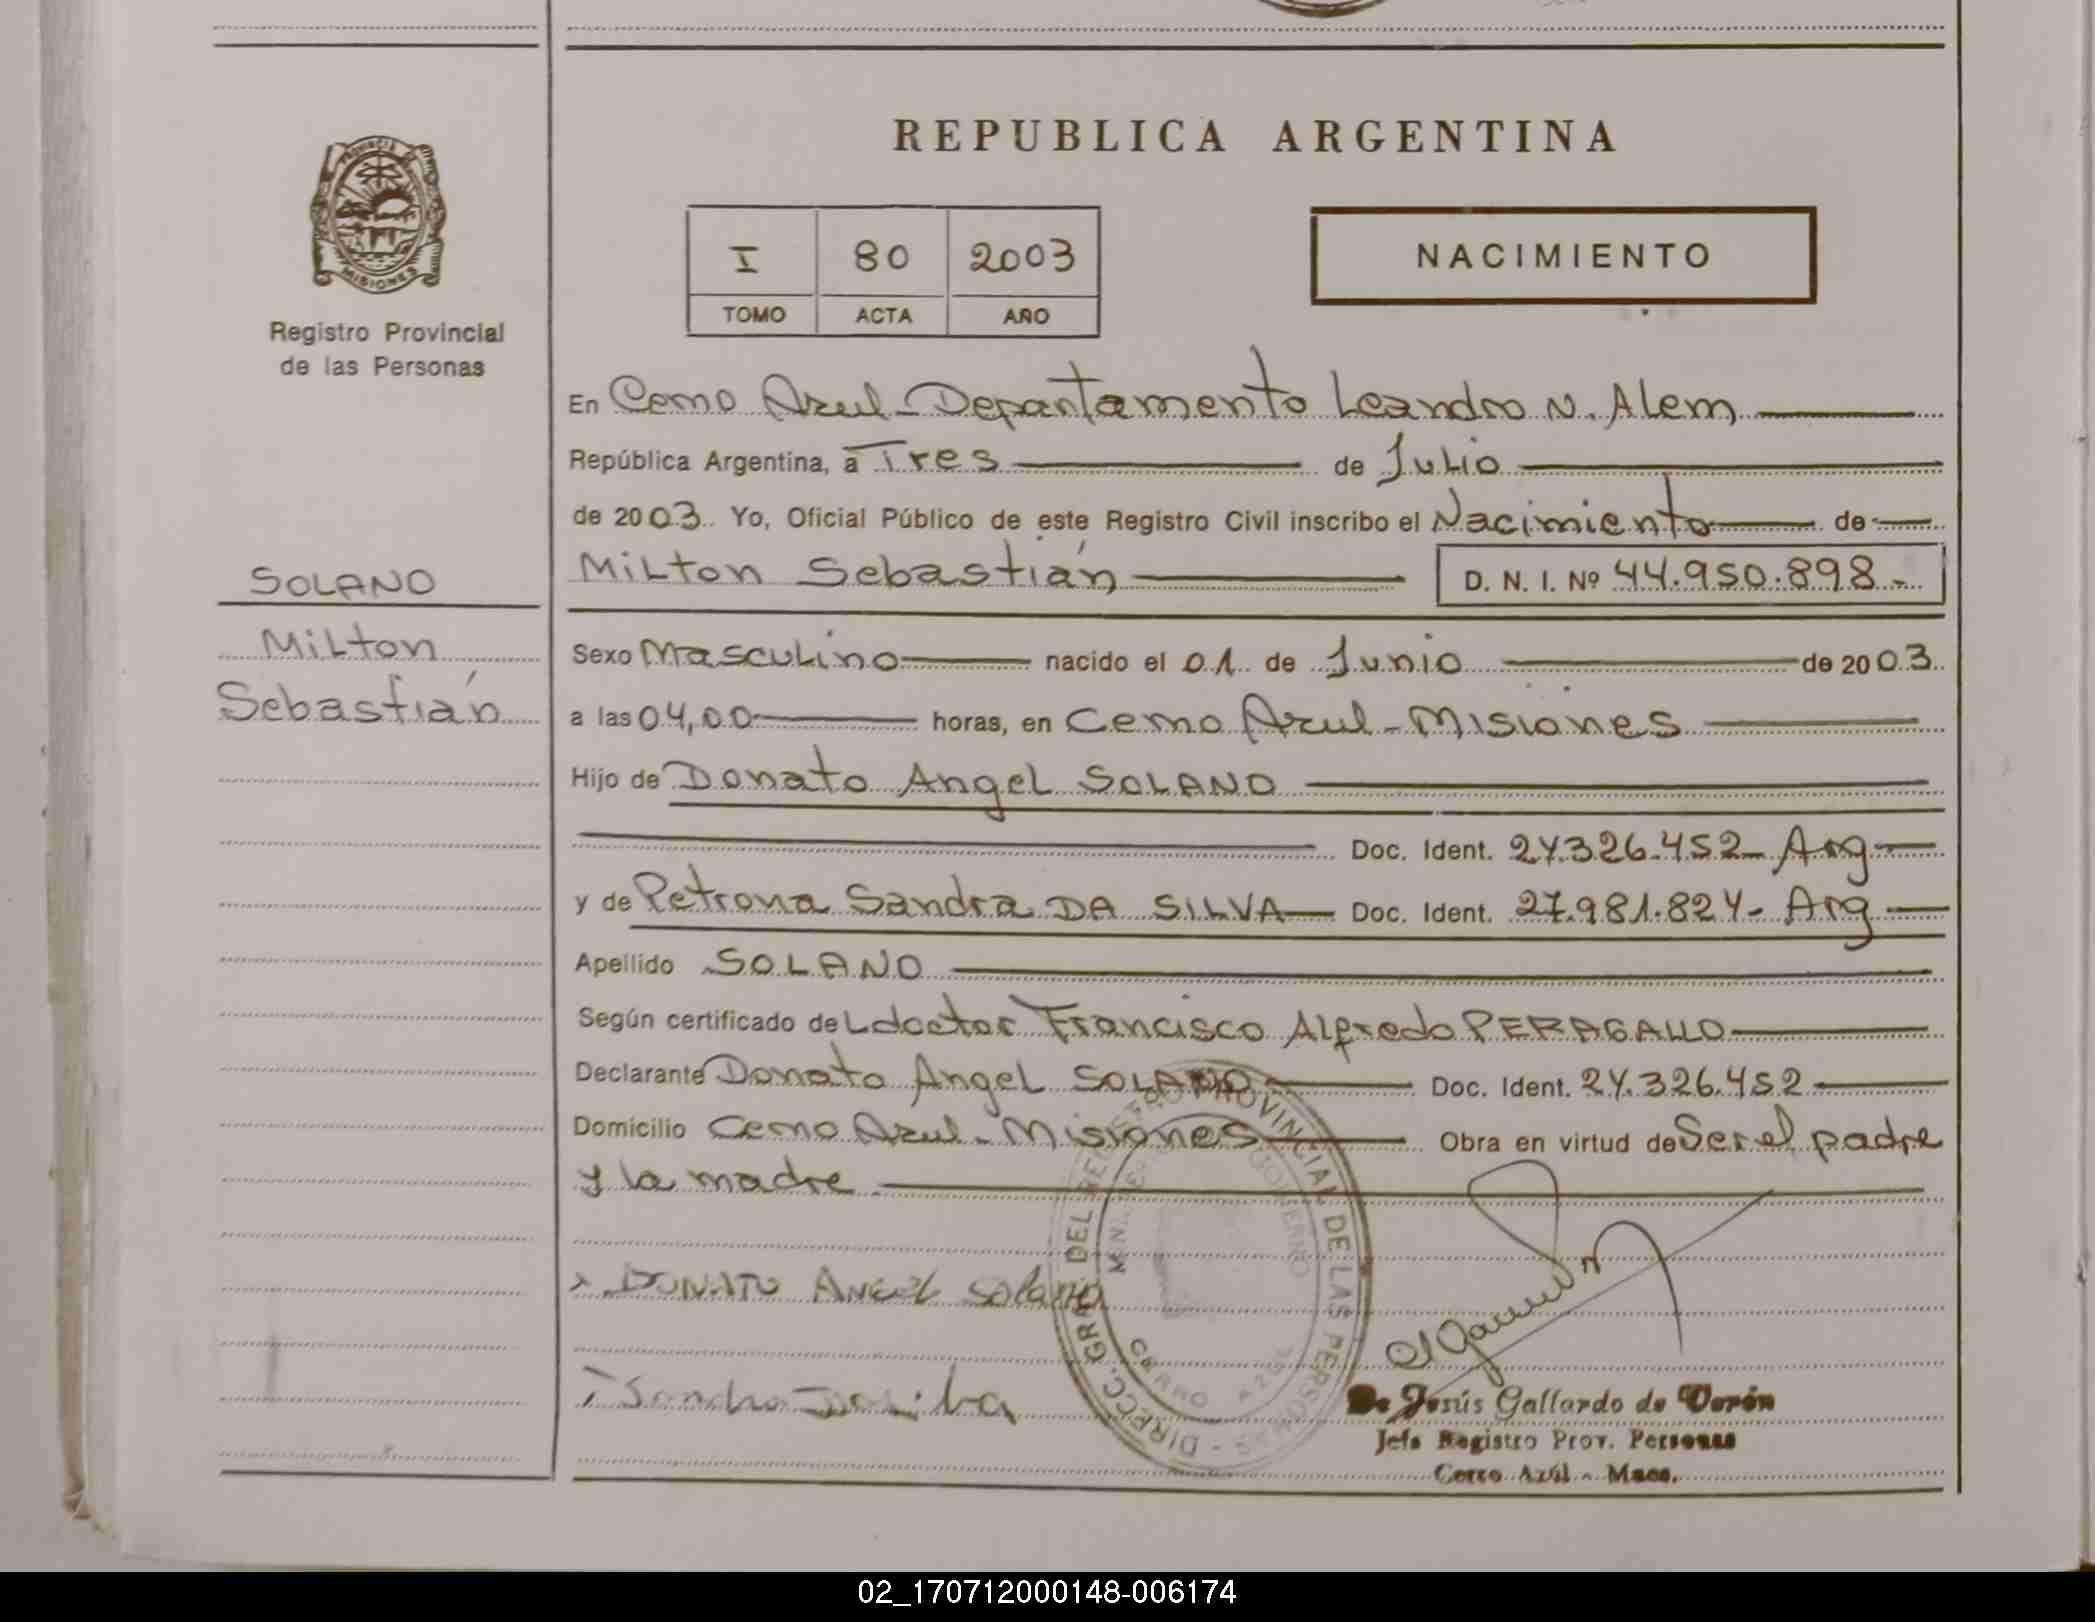 REPUBLICA ARGENTINA
PROVINCIA DE
MISIONES
Registro Provincial
de las Personas
I 80 2003
TOMO ACTA AÑO
NACIMIENTO
En Cerro Azul - Departamento Leandro N. Alem
República Argentina, a Tres de Julio
de 2003. Yo, Oficial Público de este Registro Civil inscribo el Nacimiento de
SOLANO
Milton
Sebastián
Milton Sebastián D. N. I. Nº 44.950.898.-
Sexo Masculino nacido el 01 de Junio de 2003
a las 04,00 horas, en Cerro Azul - Misiones
Hijo de Donato Angel SOLANO
Doc. Ident. 24.326.452 - Arg
y de Petrona Sandra DA SILVA Doc. Ident. 27.981.824 - Arg
Apellido SOLANO
Según certificado del doctor Francisco Alfredo PERAGALLO
Declarante Donato Angel SOLANO Doc. Ident. 24.326.452
Domicilio Cerro Azul - Misiones Obra en virtud de Ser el padre
y la madre
DONATO ANGEL Solano
DIRECC. GRAL DEL REGISTRO PROVINCIAL DE LAS PERSONAS
GOBIERNO
CERRO AZUL
De Jesús Gallardo de Verón
Jefe Registro Prov. Personas
Cerro Azul - Mnes.
02_170712000148-006174